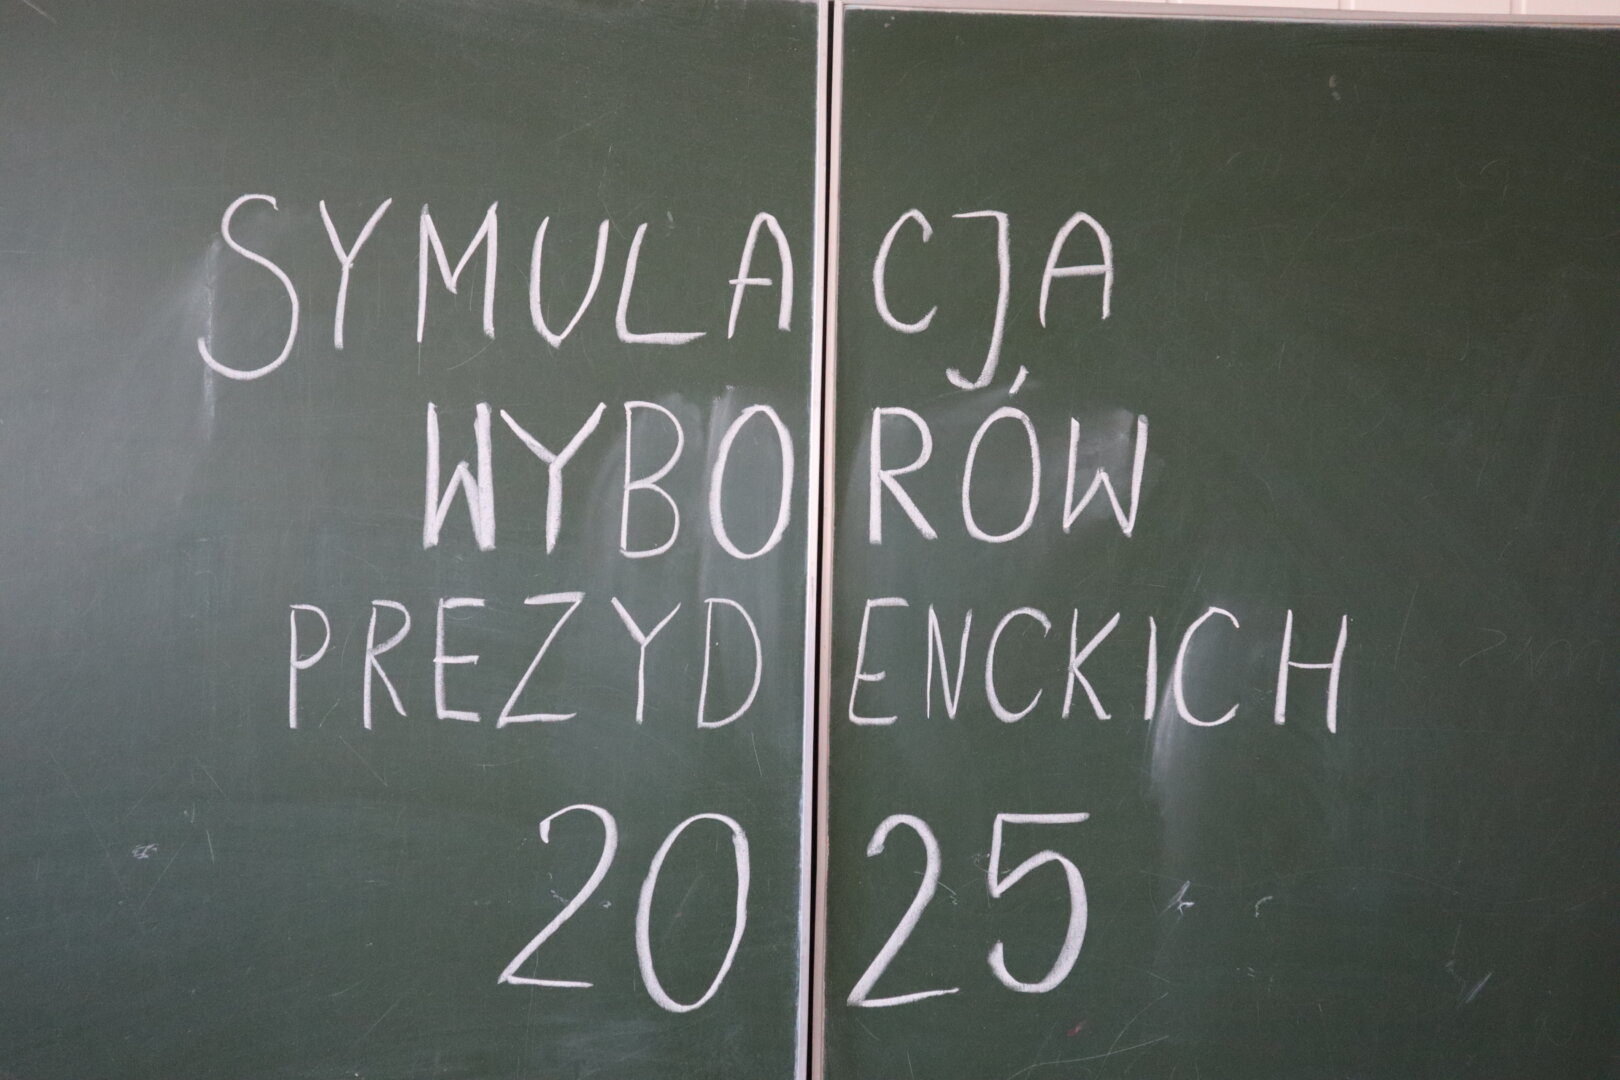 SYMULACJA
WYBORÓW
PREZYDENCKICH
2025